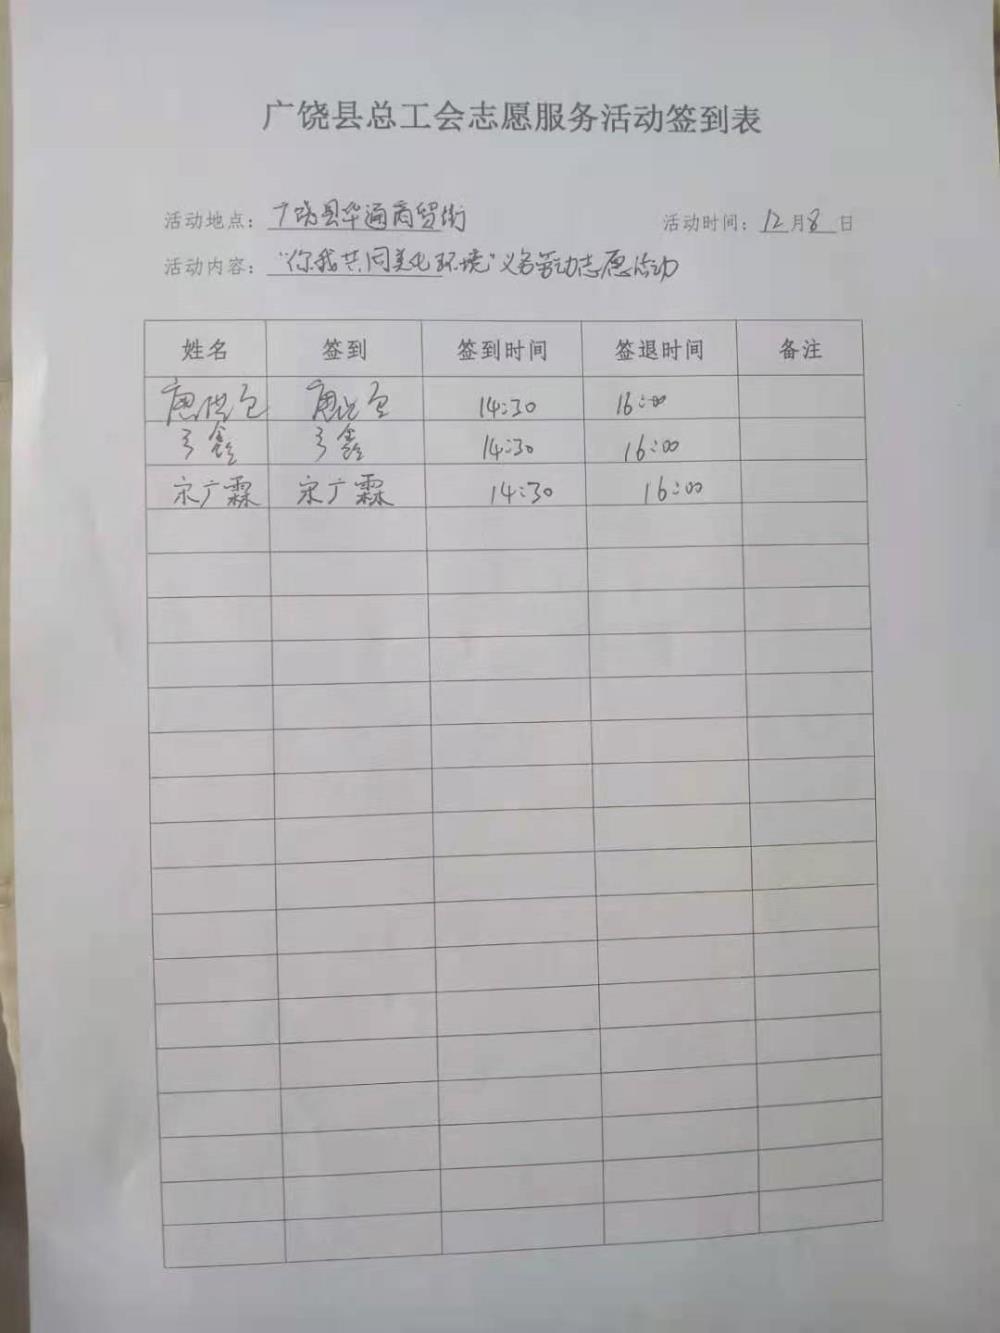 广饶县总工会志愿服务活动签到表
活动地点：广饶县华通商贸街 活动时间：12月8日
活动内容："你我共同美化环境"义务劳动志愿活动
姓名 签到 签到时间 签退时间 备注
14:30 16:00
鑫 鑫 14:30 16:00
宋广霖 宋广霖 14:30 16:00